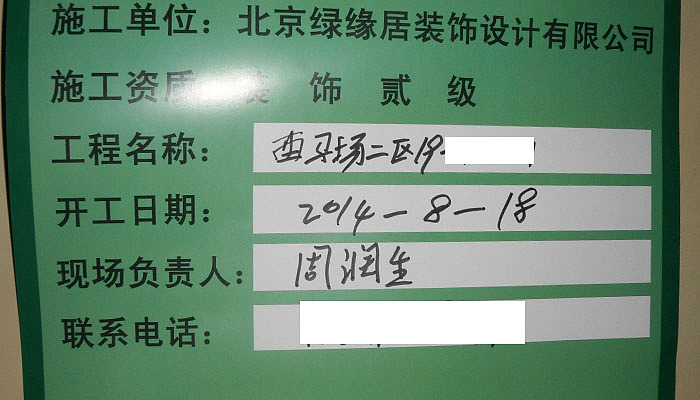 施工单位：北京绿缘居装饰设计有限公司
施工资质：装饰贰级
工程名称：西马场二区19
开工日期：2014-8-18
现场负责人：周润生
联系电话：